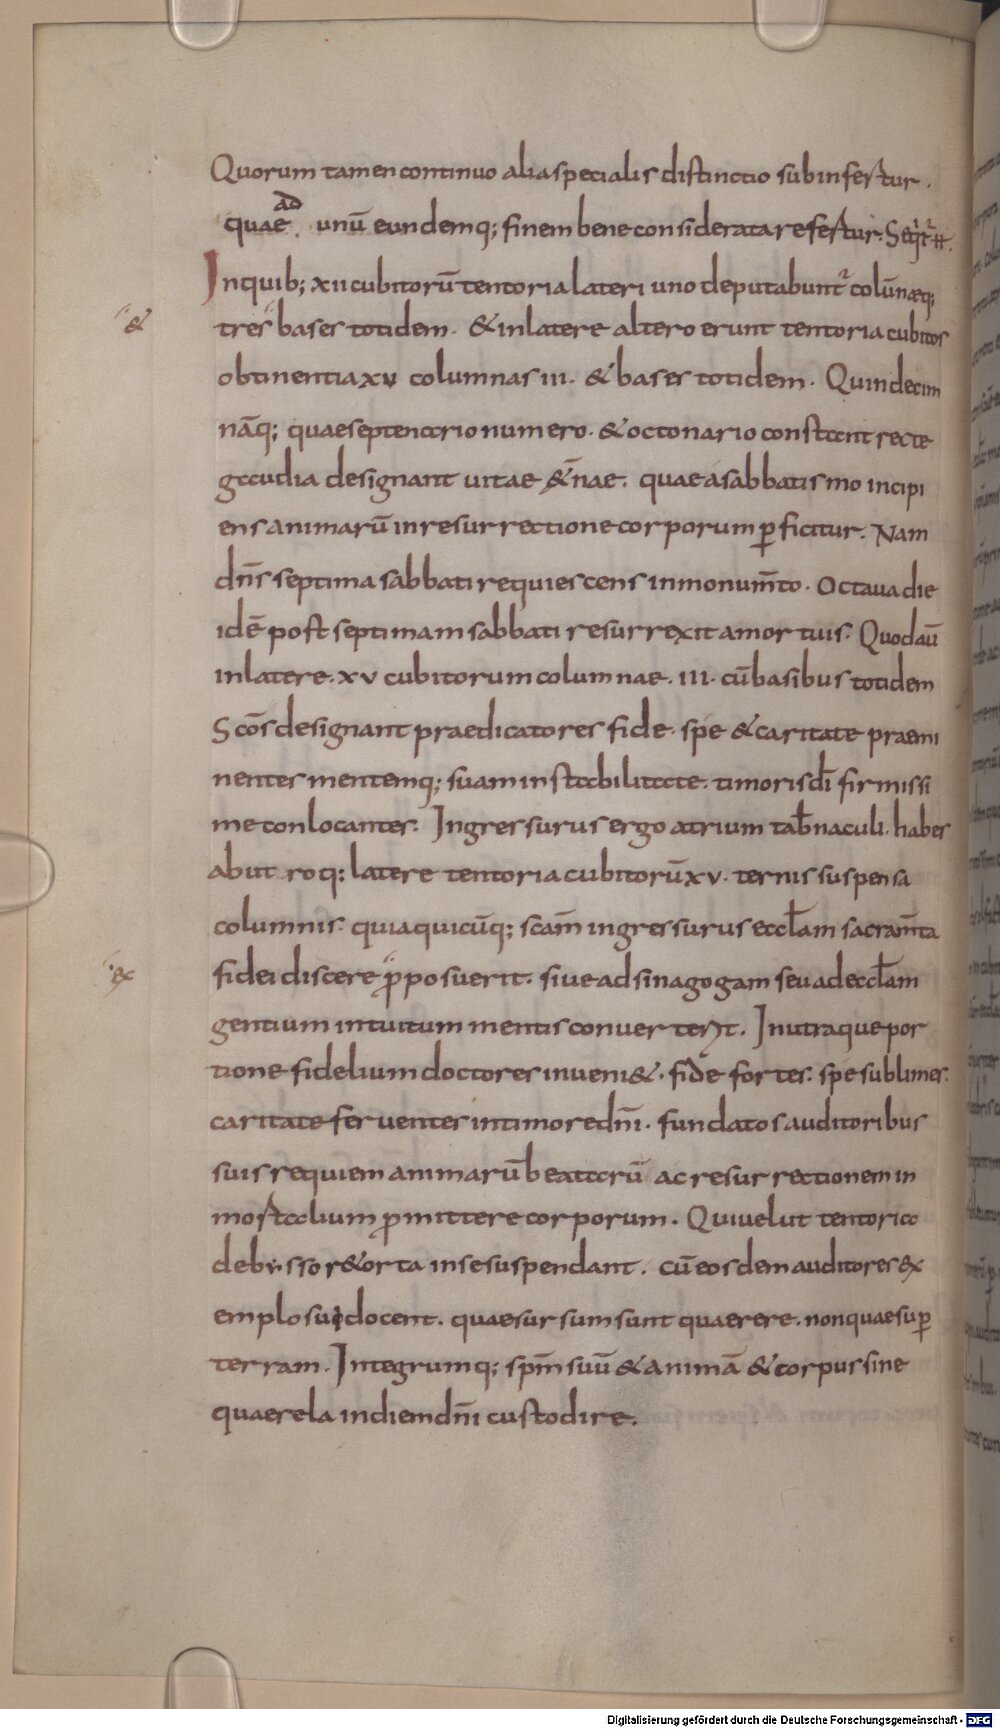 Quorum tamen continuo alia specialis distinctio subinfertur.
quae ad unū eundemq; finem bene considerata refertur. Seqr̄t̄
Inquib; xii cubitorū tentoria lateri uno deputabunt̄ colūnæq;
& tres bases totidem. & in latere altero erunt tentoria cubitos
obtinentia xv columnas iii. & bases totidem. Quindecim
nāq; quae septenario numero. & octonario constant recte
gaudia designant uitae &n̄ae. quae a sabbatismo incipi
ens animarū in resurrectione corporum ꝑficitur. Nam
dn̄s septima sabbati requiescens in monum̄to. Octaua die
idē post septimam sabbati resurrexit a mortuis. Quod aū
in latere. xv cubitorum columnae. III. cū basibus totidem
Scōs designant praedicatores fide. spe & caritate praemi
nentes mentemq; suam in stabilitate. timoris dī firmissi
me conlocantes. Ingressurus ergo atrium tab̄naculi. habes
ab utroq: latere tentoria cubitorū xv. ternis suspensa
columnis. quia quicūq; scam̄ ingressurus eccl̄am sacram̄ta
ex fidei discere p̄posuerit. siue ad sinagogam seu ad eccl̄am
gentium intuitum mentis conuerterit. In utraque por
tione fidelium doctores inueni&. fide fortes. spe sublimes.
caritate feruentes in timore dn̄i. fundatos auditoribus
suis requiem animarū beatarū ac resurrectionem in
mortalium p̄mittere corporum. Qui uelut tentoria
de bysso r&orta in se suspendant. cū eosdem auditores ex
emplo sui docent. quae sursum sunt quaerere. non quae suꝑ
terram. Integrumq; spm̄ suū & animā & corpus sine
quaerela in diem dn̄i custodire.
Digitalisierung gefördert durch die Deutsche Forschungsgemeinschaft - DFG